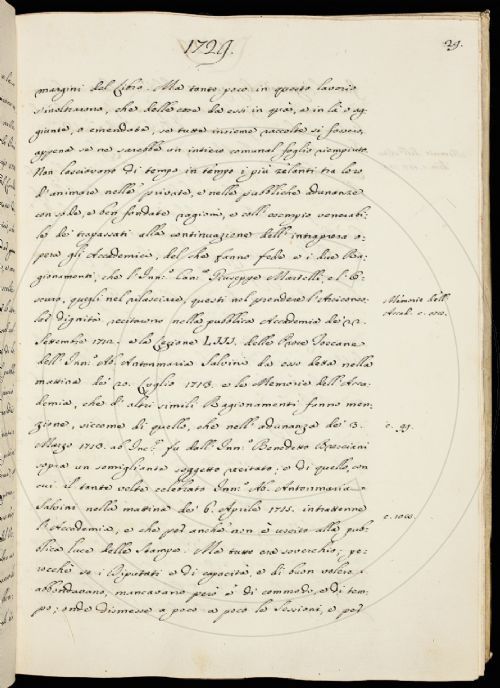 1729.
29.
margini del Libro. Ma tanto poco in questo lavoro
s'inoltrarono, che delle cose da essi in quà, e in là o ag-
giunte, o emendate, se tutte insieme raccolte si fossero,
appena se ne sarebbe un intiero comunal foglio riempiuto.
Non lasciavano di tempo in tempo i più zelanti tra loro
d'animare nelle private, e nelle pubbliche adunanze
con sode, e ben fondate ragioni, e coll'esempio venerabi-
le de' trapassati alla continuazione dell'intrapresa o-
pera gli Accademici, del che fanno fede e i due Ra-
gionamenti, che l'Inn.º Can.º Giuseppe Martelli, e l'O-
scuro, quegli nel rilasciare, questi nel prendere l'Arciconso-
lar dignità recitarono nella pubblica Accademia de' 22.
Settembre 1712. e la Lezione LIII. delle Prose Toscane
dell'Inn.º Ab. Antonmaria Salvini da esso detta nella
mattina de' 20. Luglio 1713. e le Memorie dell'Acca-
demia, che d'altri simili Ragionamenti fanno men-
zione, siccome di quello, che nell'adunanza de' 3.
Marzo 1713. ab Inc.º fu dall'Inn.º Benedetto Bresciani
sopra un somigliante soggetto recitato; e di quello, con
cui il tante volte celebrato Inn.º Ab. Antonmaria
Salvini nella mattina de' 6. Aprile 1715. intrattenne
l'Accademia, e che per anche non è uscito alla pub-
blica luce delle Stampe: Ma tutto era soverchio; pe-
rocchè se i Deputati e di capacità, e di buon volere
abbondavano, mancavano però e di commodo, e di tem-
po; onde dismesse a poco a poco le Sessioni, e per
Memorie dell'
Accad. c.
c. 99.
c.